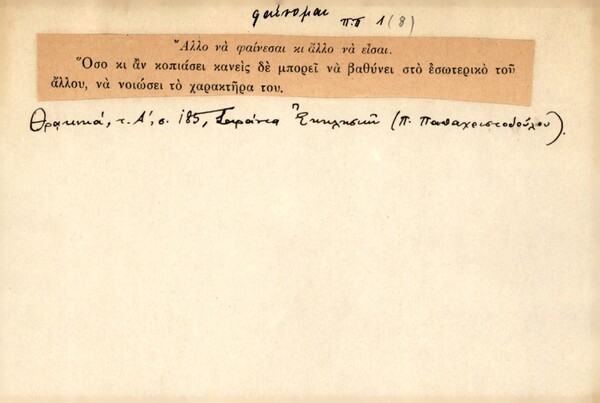 φαίνομαι π.π 1 (8)
Ἄλλο νὰ φαίνεσαι κι ἄλλο νὰ εἶσαι.
Ὅσο κι ἂν κοπιάσει κανεὶς δὲ μπορεῖ νὰ βαθύνει στὸ ἐσωτερικὸ τοῦ
ἄλλου, νὰ νοιώσει τὸ χαρακτῆρα του.
Θρακικά, τ. Α', σ. 185, Σαράντα Ἐκκλησιαὶ (Π. Παπαχριστοδούλου).